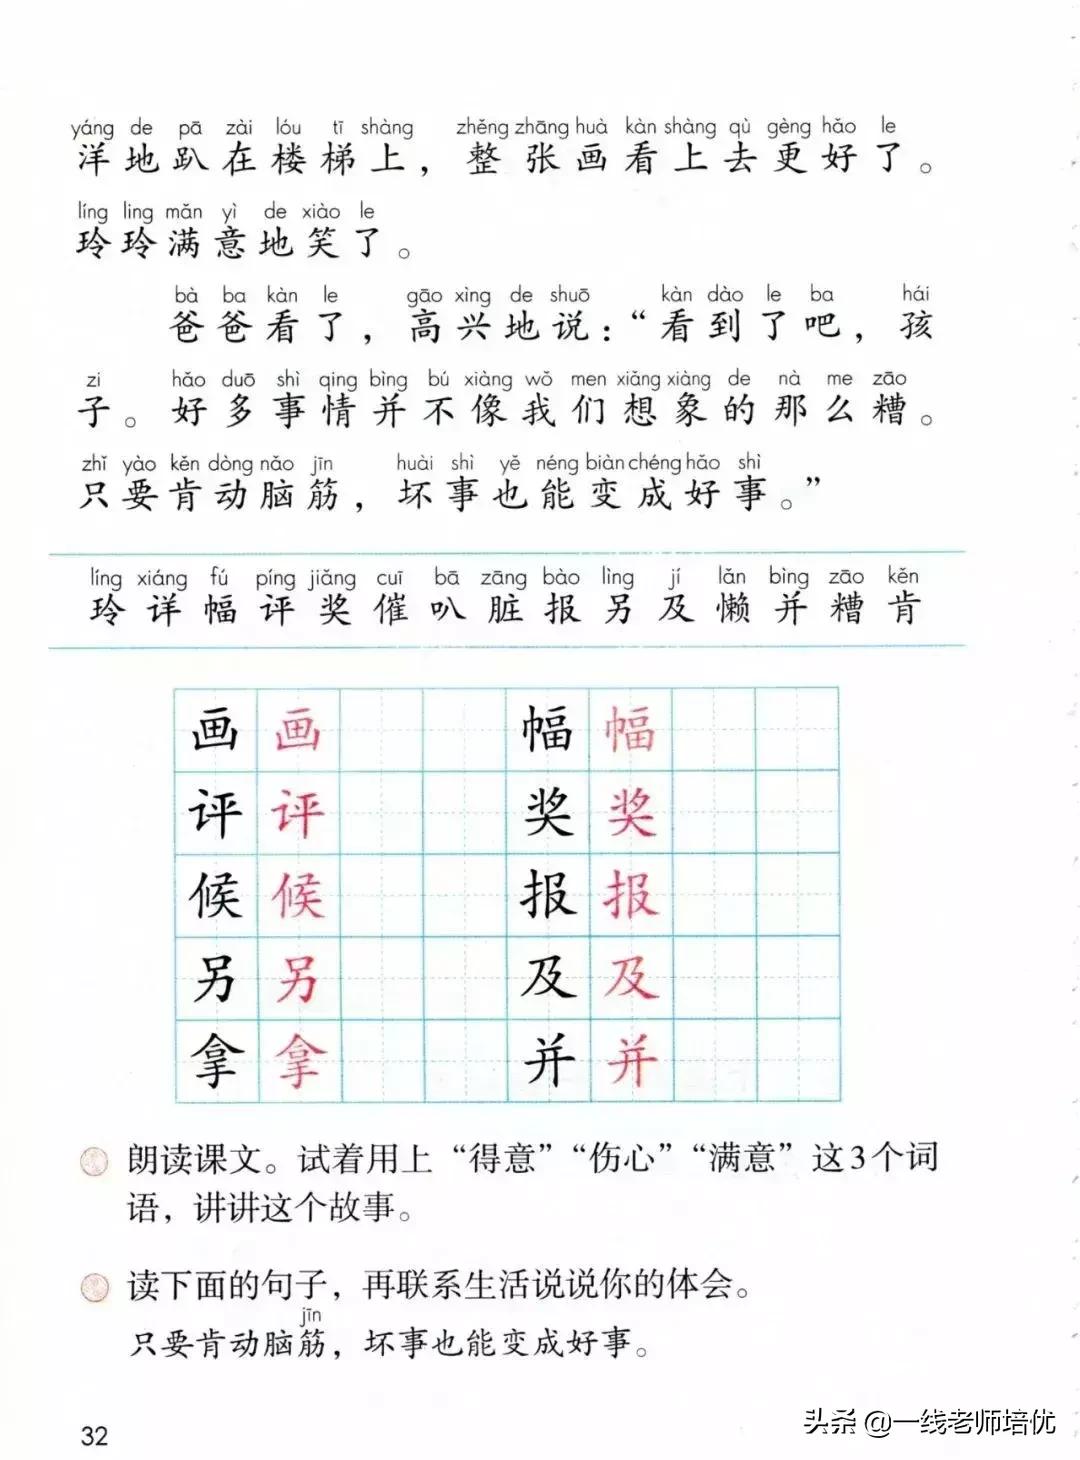 yáng de pā zài lóu tī shàng zhěng zhāng huà kàn shàng qù gèng hǎo le
洋地趴在楼梯上，整张画看上去更好了。
líng ling mǎn yì de xiào le
玲玲满意地笑了。
bà ba kàn le gāo xìng de shuō kàn dào le ba hái
爸爸看了，高兴地说：“看到了吧，孩
zi hǎo duō shì qing bìng bú xiàng wǒ men xiǎng xiàng de nà me zāo
子。好多事情并不像我们想象的那么糟。
zhǐ yào kěn dòng nǎo jīn huài shì yě néng biàn chéng hǎo shì
只要肯动脑筋，坏事也能变成好事。”
líng xiáng fú píng jiǎng cuī bā zāng bào lìng jí lǎn bìng zāo kěn
玲详幅评奖催叭脏报另及懒并糟肯
画画 幅幅
评评 奖奖
候候 报报
另另 及及
拿拿 并并
朗读课文。试着用上“得意”“伤心”“满意”这3个词
语，讲讲这个故事。
读下面的句子，再联系生活说说你的体会。
jīn
只要肯动脑筋，坏事也能变成好事。
32
头条 @一线老师培优